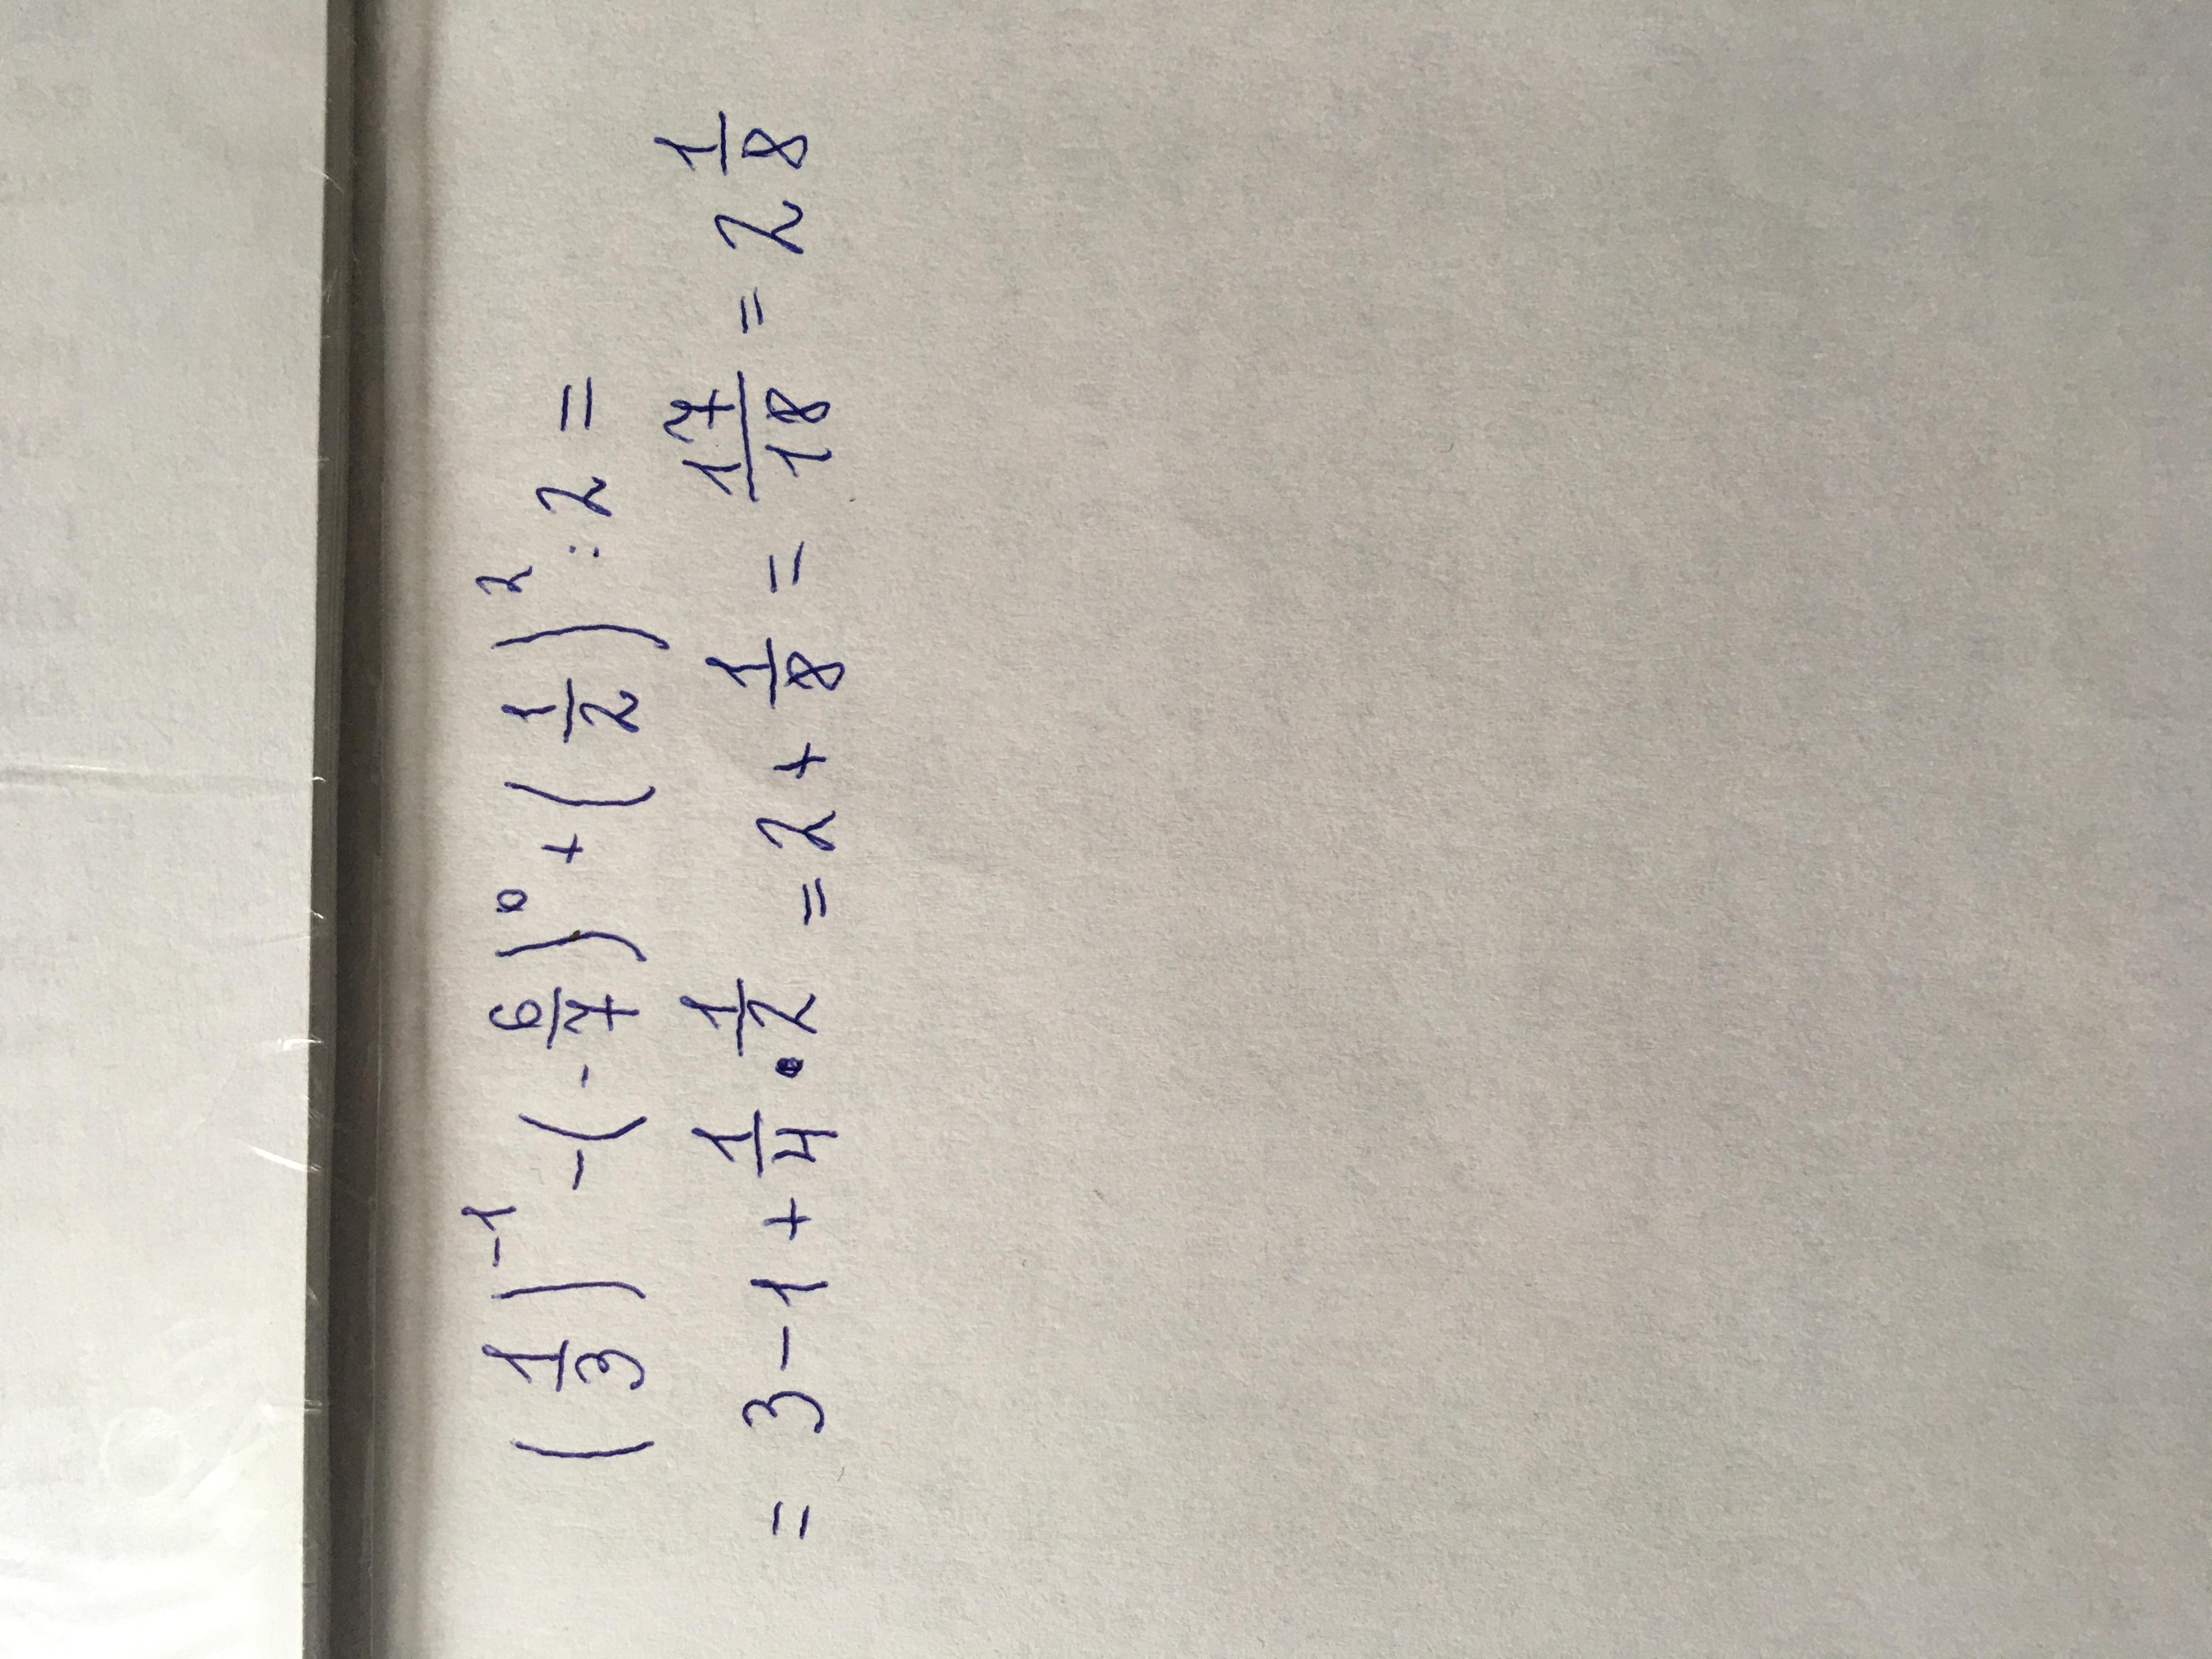 (1/3)⁻¹ - (-6/7)⁰ + (1/2)² : 2 =
= 3 - 1 + 1/4 • 1/2 = 2 + 1/8 = 17/18 = 2 1/8